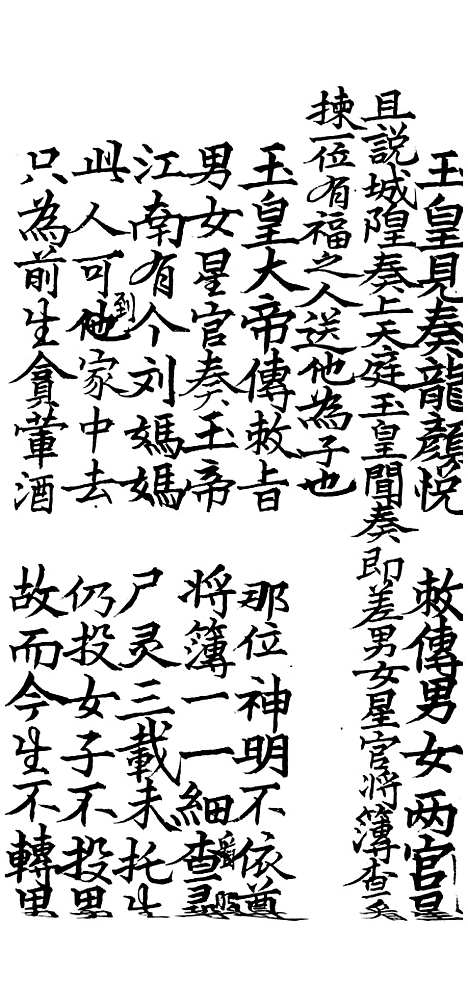 玉皇見奏龍顔悦 敕傳男女两官星
且説城隍奏上天庭玉皇聞奏即差男女星官将簿查
揀一位有福之人送他為子也
玉皇大帝傳敕旨 那位神明不依遵
男女星官奏玉帝 将簿一一細查尋
江南有个刘媽媽 尸灵三載未托生
此人可到他家中去 仍投女子不投男
只為前生貪葷酒 故而今生不轉男